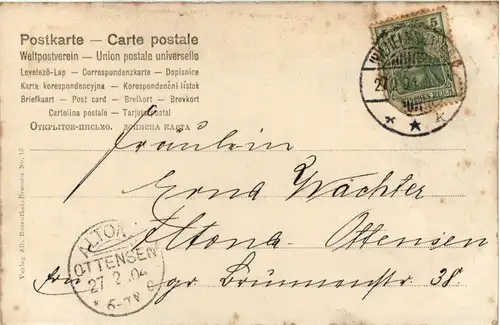 Postkarte — Carte postale
Weltpostverein — Union postale universelle
Levelező-Lap — Correspondenzkarte — Dopisnice
Karta korespondencyjna — Korespondenční lístek
Briefkart — Post card — Brefkort — Brevkort
Cartolina postale — Tarjeta postal
Открытое-письмо. дописна карта
5
Fräulein
Erna Wächter
Altona-Ottensen
gr Brunnenstr 38.
ALTONA
OTTENSEN
27 2 .04
* 6-7N
Verlag Alb. Rosenthal, Bremen No. 13